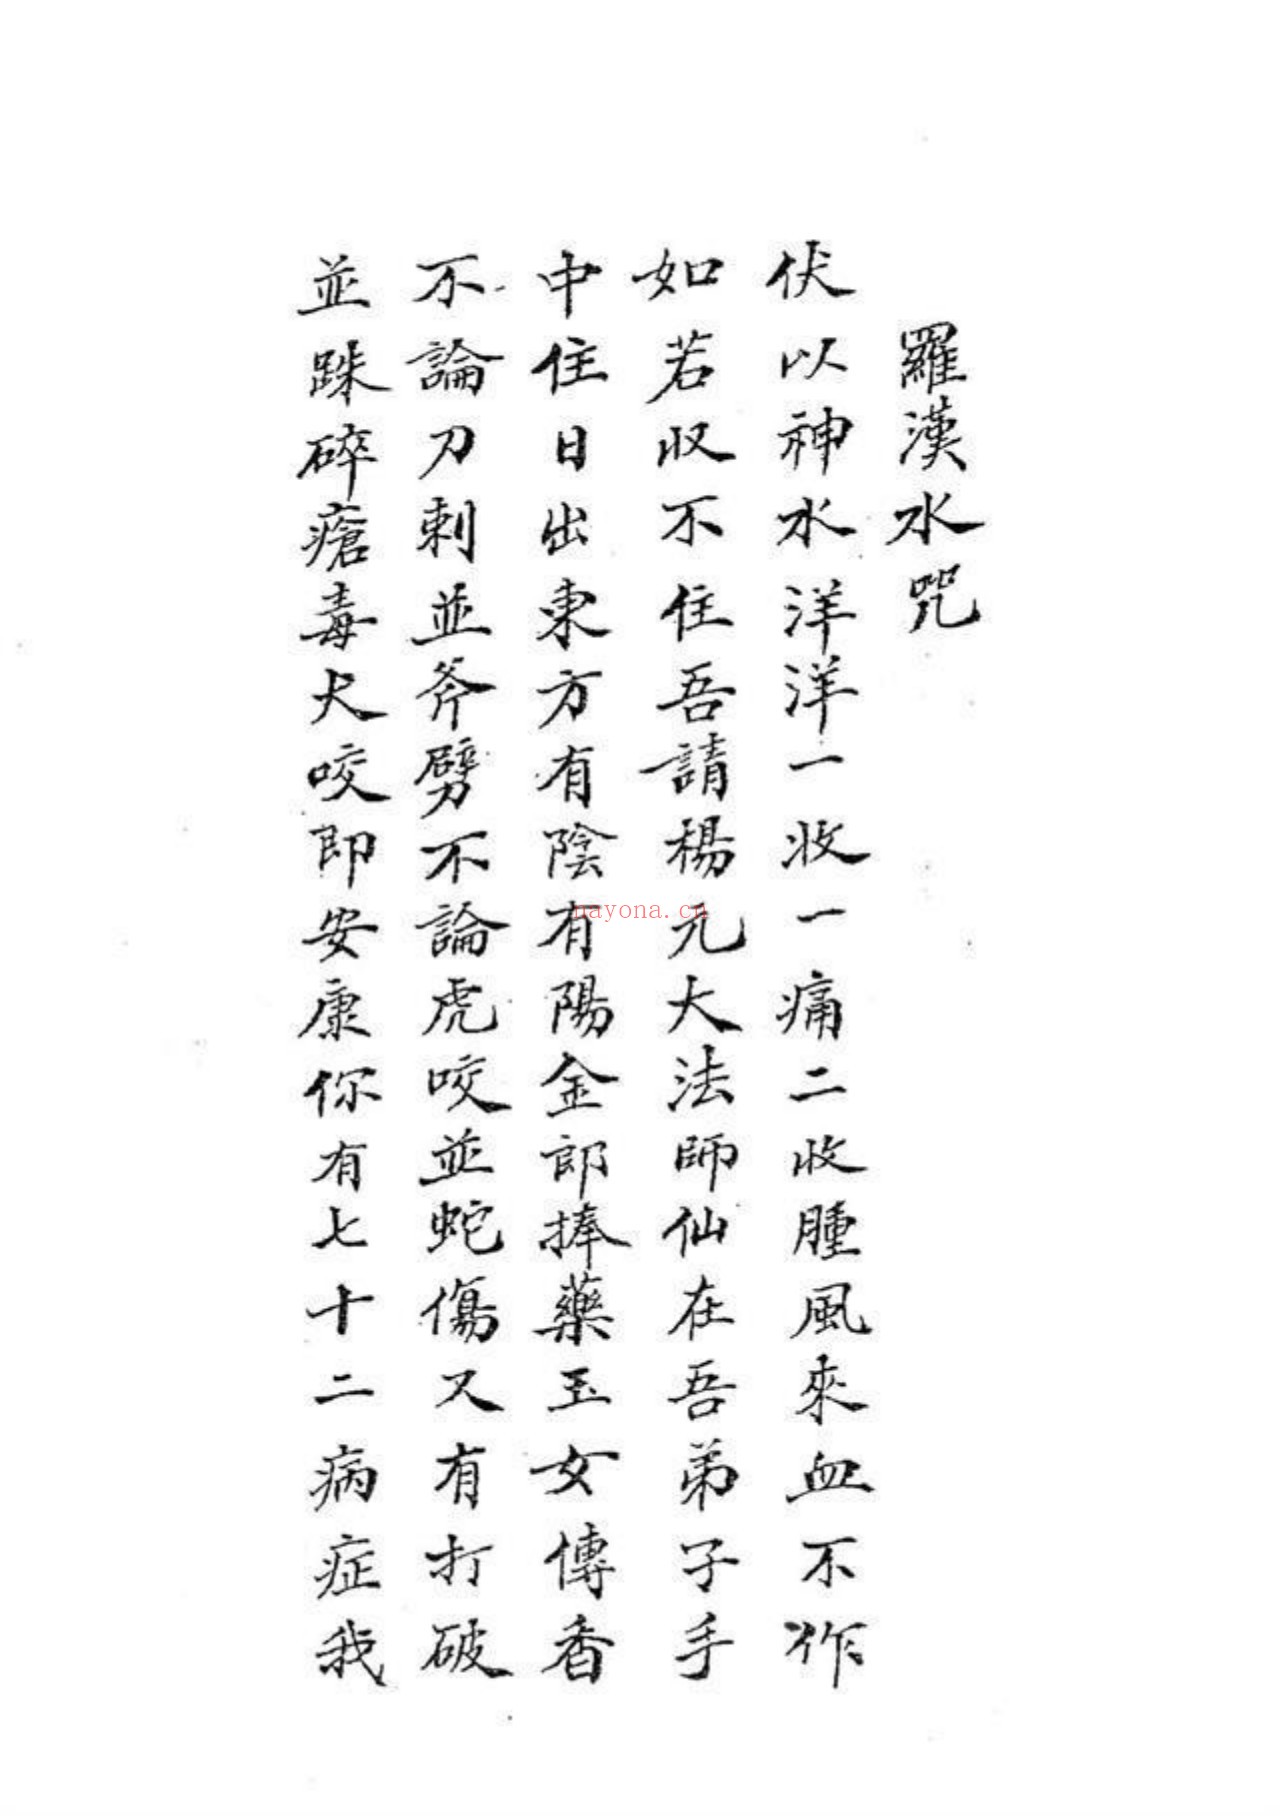 羅漢水咒
伏以神水洋洋一收一痛二收腫風來血不作
如若收不住吾請楊元大法師仙在吾弟子手
中住日出東方有陰有陽金郎捧藥玉女傳香
不論刀刺並斧劈不論虎咬並蛇傷又有打破
並跌碎瘡毒犬咬即安康你有七十二病症我
nayona.cn